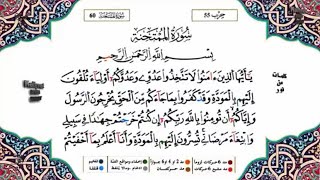 حزب 55
60
سُورَةُ الْمُمْتَحَنَةِ
بِسْمِ اللَّهِ الرَّحْمَٰنِ الرَّحِيمِ
يَا أَيُّهَا الَّذِينَ آمَنُوا لَا تَتَّخِذُوا عَدُوِّي وَعَدُوَّكُمْ أَوْلِيَاءَ تُلْقُونَ
إِلَيْهِم بِالْمَوَدَّةِ وَقَدْ كَفَرُوا بِمَا جَاءَكُم مِّنَ الْحَقِّ يُخْرِجُونَ الرَّسُولَ
وَإِيَّاكُمْ أَن تُؤْمِنُوا بِاللَّهِ رَبِّكُمْ إِن كُنتُمْ خَرَجْتُمْ جِهَادًا فِي سَبِيلِي
وَابْتِغَاءَ مَرْضَاتِي تُسِرُّونَ إِلَيْهِم بِالْمَوَدَّةِ وَأَنَا أَعْلَمُ بِمَا أَخْفَيْتُمْ
كلمات
من
نور